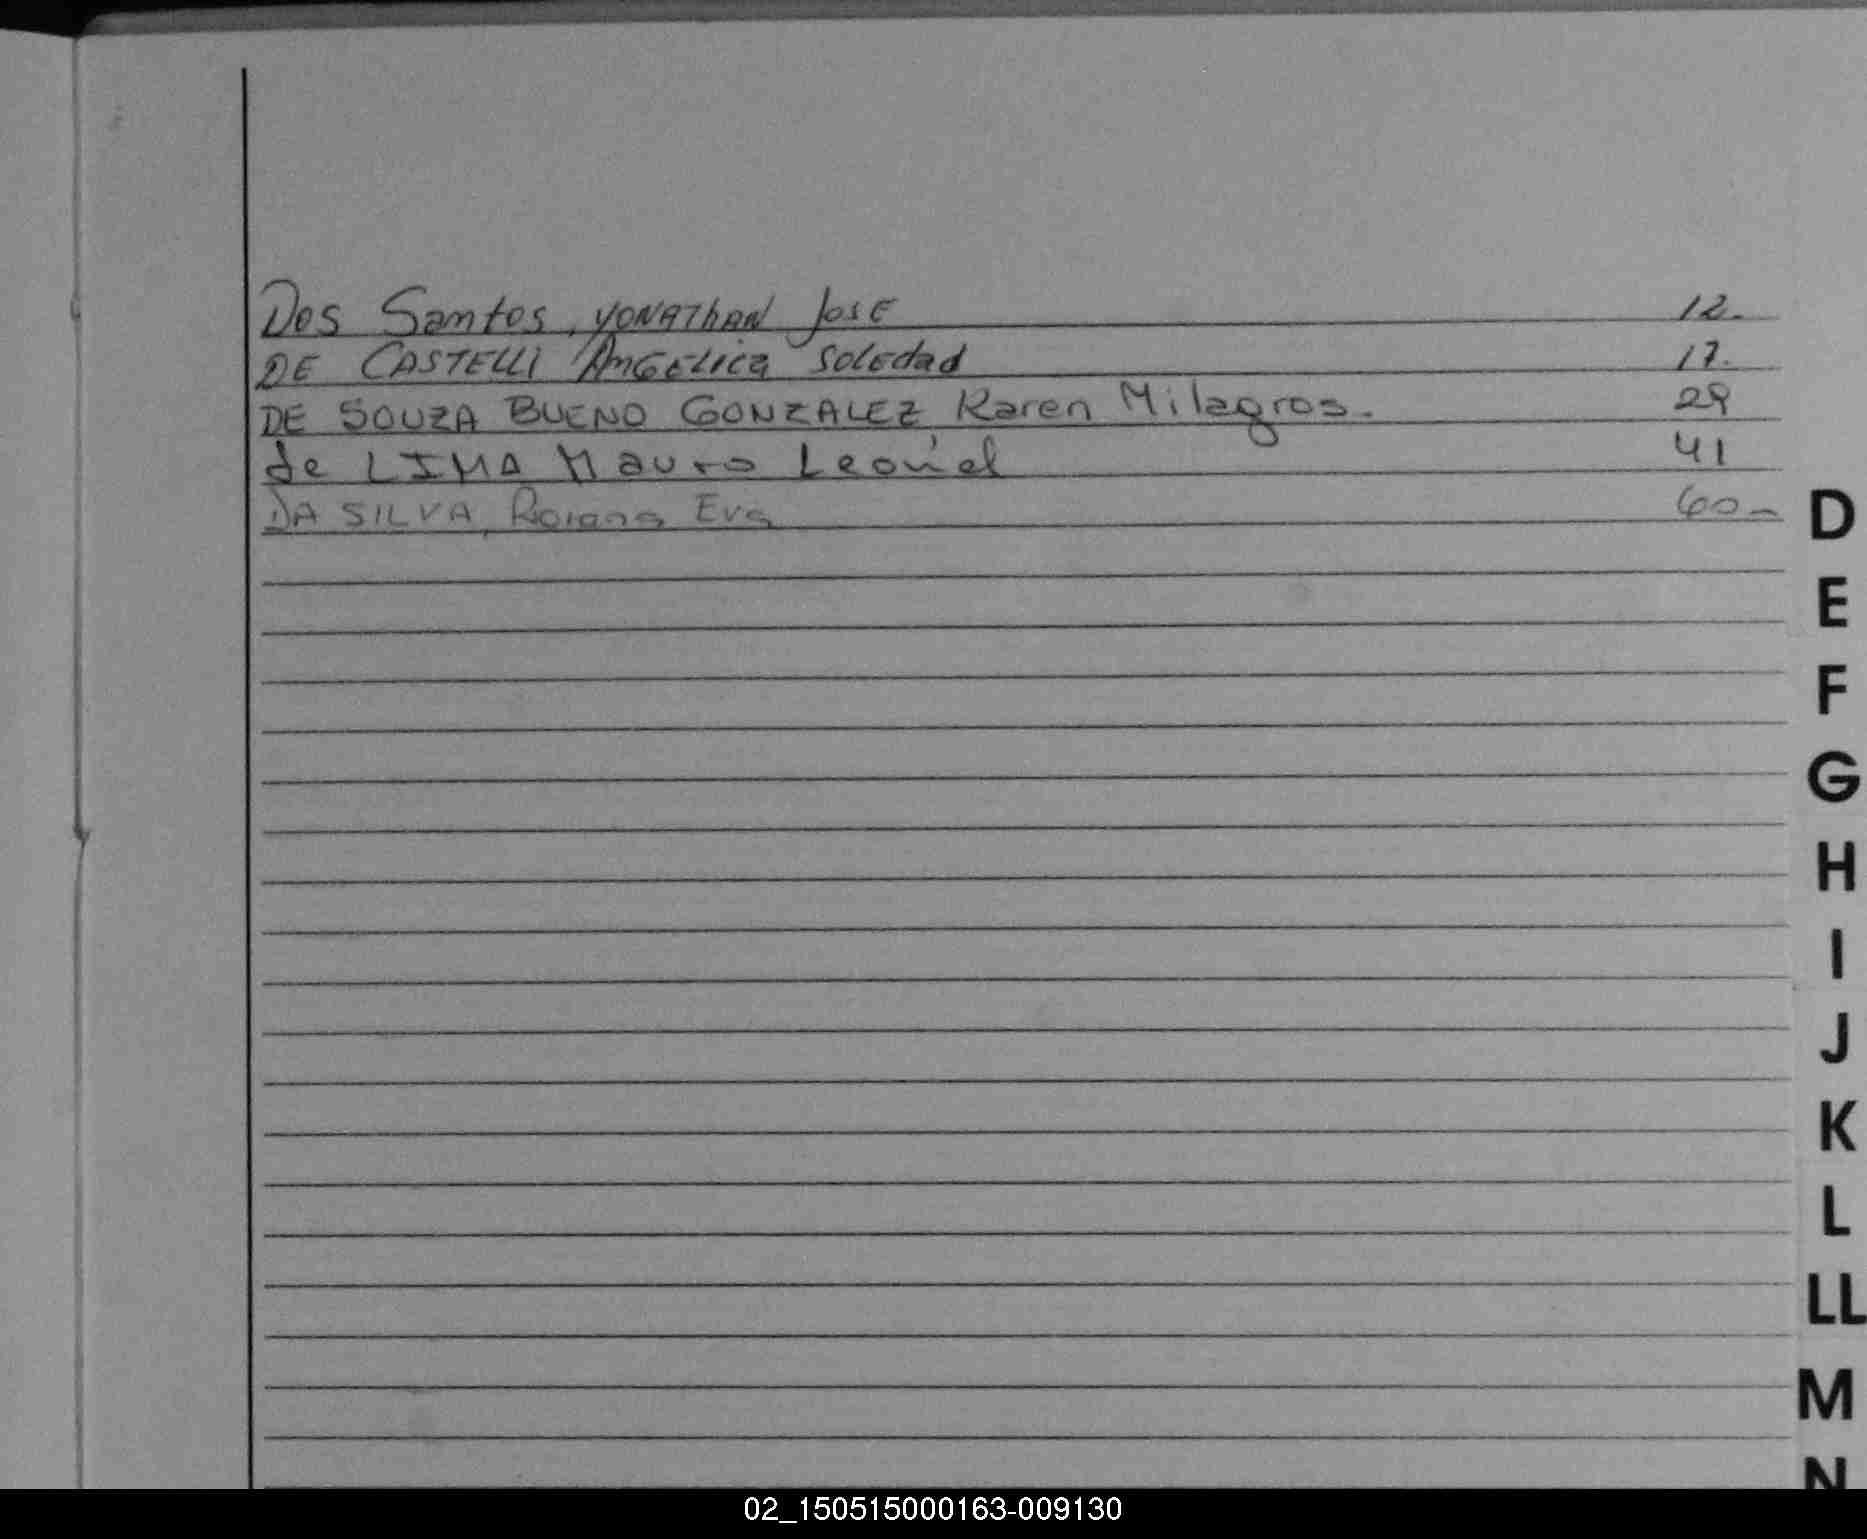 Dos Santos, YONAThAN José 12.
DE CASTELLI ANGELica Soledad 17.
DE SOUZA BUENO GONZALEZ, Karen Milagros. 29
de LIMA Mauro Leonel 41
DA SILVA, Eva 60-
D
E
F
G
H
I
J
K
L
LL
M
N
02_150515000163-009130